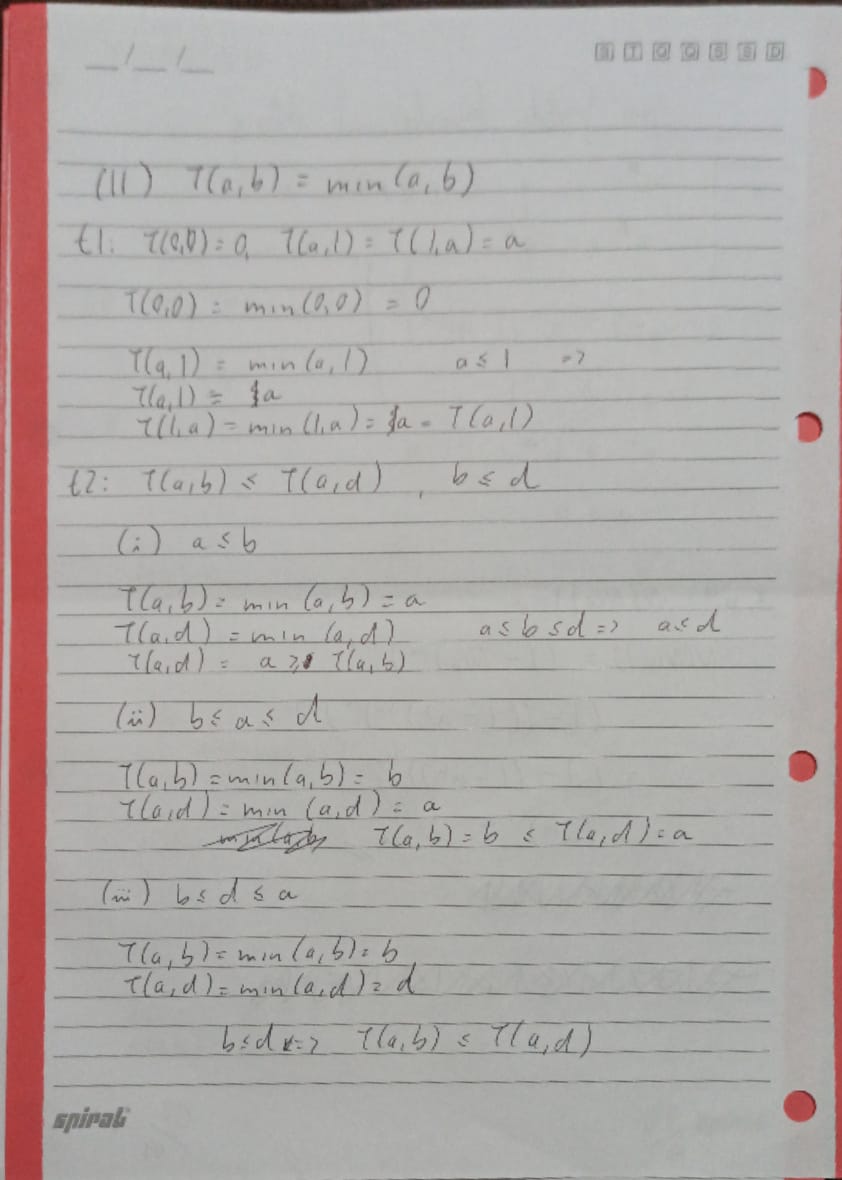 __/__/__ S T Q Q S S D
(II) T(a,b) = min(a,b)
t1: T(0,0) = 0, T(a,1) = T(1,a) = a
T(0,0) = min(0,0) = 0
T(a,1) = min(a,1) a ≤ 1 =>
T(a,1) = a
T(1,a) = min(1,a) = a = T(a,1)
t2: T(a,b) ≤ T(a,d) , b ≤ d
(i) a ≤ b
T(a,b) = min(a,b) = a
T(a,d) = min(a,d) a ≤ b ≤ d => a ≤ d
T(a,d) = a ≥ T(a,b)
(ii) b ≤ a ≤ d
T(a,b) = min(a,b) = b
T(a,d) = min(a,d) = a
T(a,b) = b ≤ T(a,d) = a
(iii) b ≤ d ≤ a
T(a,b) = min(a,b) = b
T(a,d) = min(a,d) = d
b ≤ d => T(a,b) ≤ T(a,d)
spiral